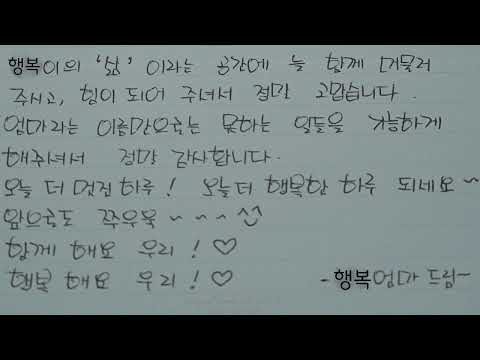 행복이의 '삶' 이라는 공간에 늘 함께 머물러
주시고, 힘이 되어 주셔서 정말 고맙습니다.
엄마라는 이름만으로는 못하는 일들을 가능하게
해주셔서 정말 감사합니다.
오늘 더 멋진 하루! 오늘 더 행복한 하루 되세요~
앞으로도 쭈우욱 ~ ~ ~ ^^
함께 해요 우리! ♡
행복 해요 우리! ♡ - 행복엄마 드림~